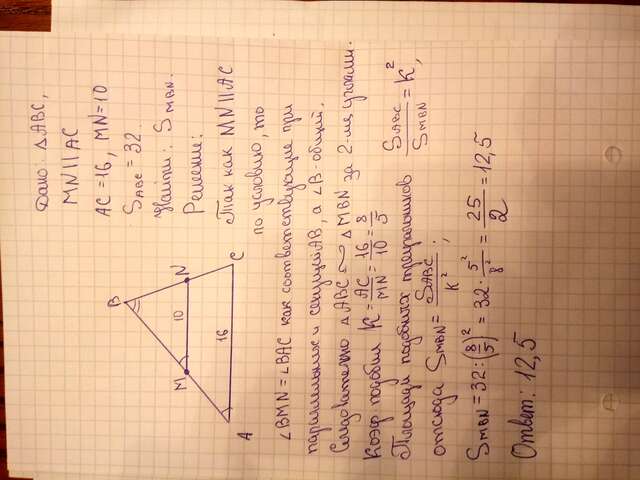 Дано: △ABC,
MN || AC
AC = 16, MN = 10
S_ABC = 32.
Найти: S_MBN.
Решение:
Так как MN || AC
по условию, то
B
M
N
10
16
A
C
∠BMN = ∠BAC как соответствующие при
параллельных и секущей AB, а ∠B - общий.
Следовательно △ABC ~ △MBN за 2-мя углами.
Коэф. подобия K = AC/MN = 16/10 = 8/5
Площади подобных треугольников S_ABC/S_MBN = K²,
отсюда S_MBN = S_ABC/K²;
S_MBN = 32 : (8/5)² = 32 · 5²/8² = 25/2 = 12,5
Ответ: 12,5